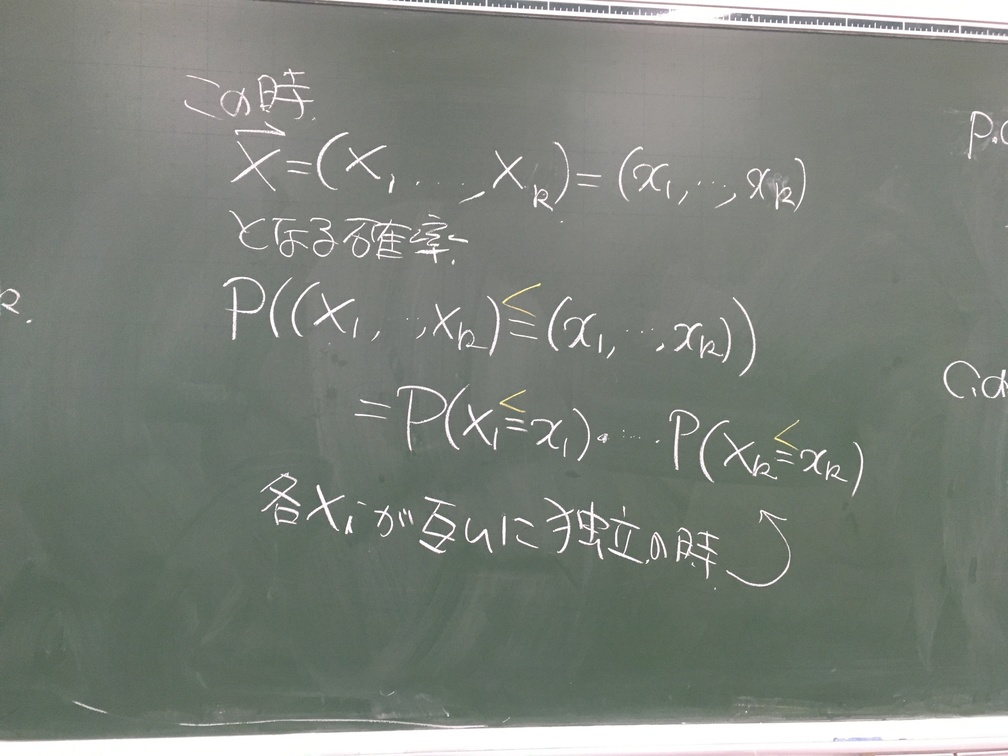 この時
X⃗=(X₁,…,X_k)=(x₁,…,x_k)
となる確率
P((X₁,…,X_k)≦(x₁,…,x_k))
=P(X₁≦x₁)・…P(X_k≦x_k)
各Xᵢが互いに独立の時
k.
P.
C.d